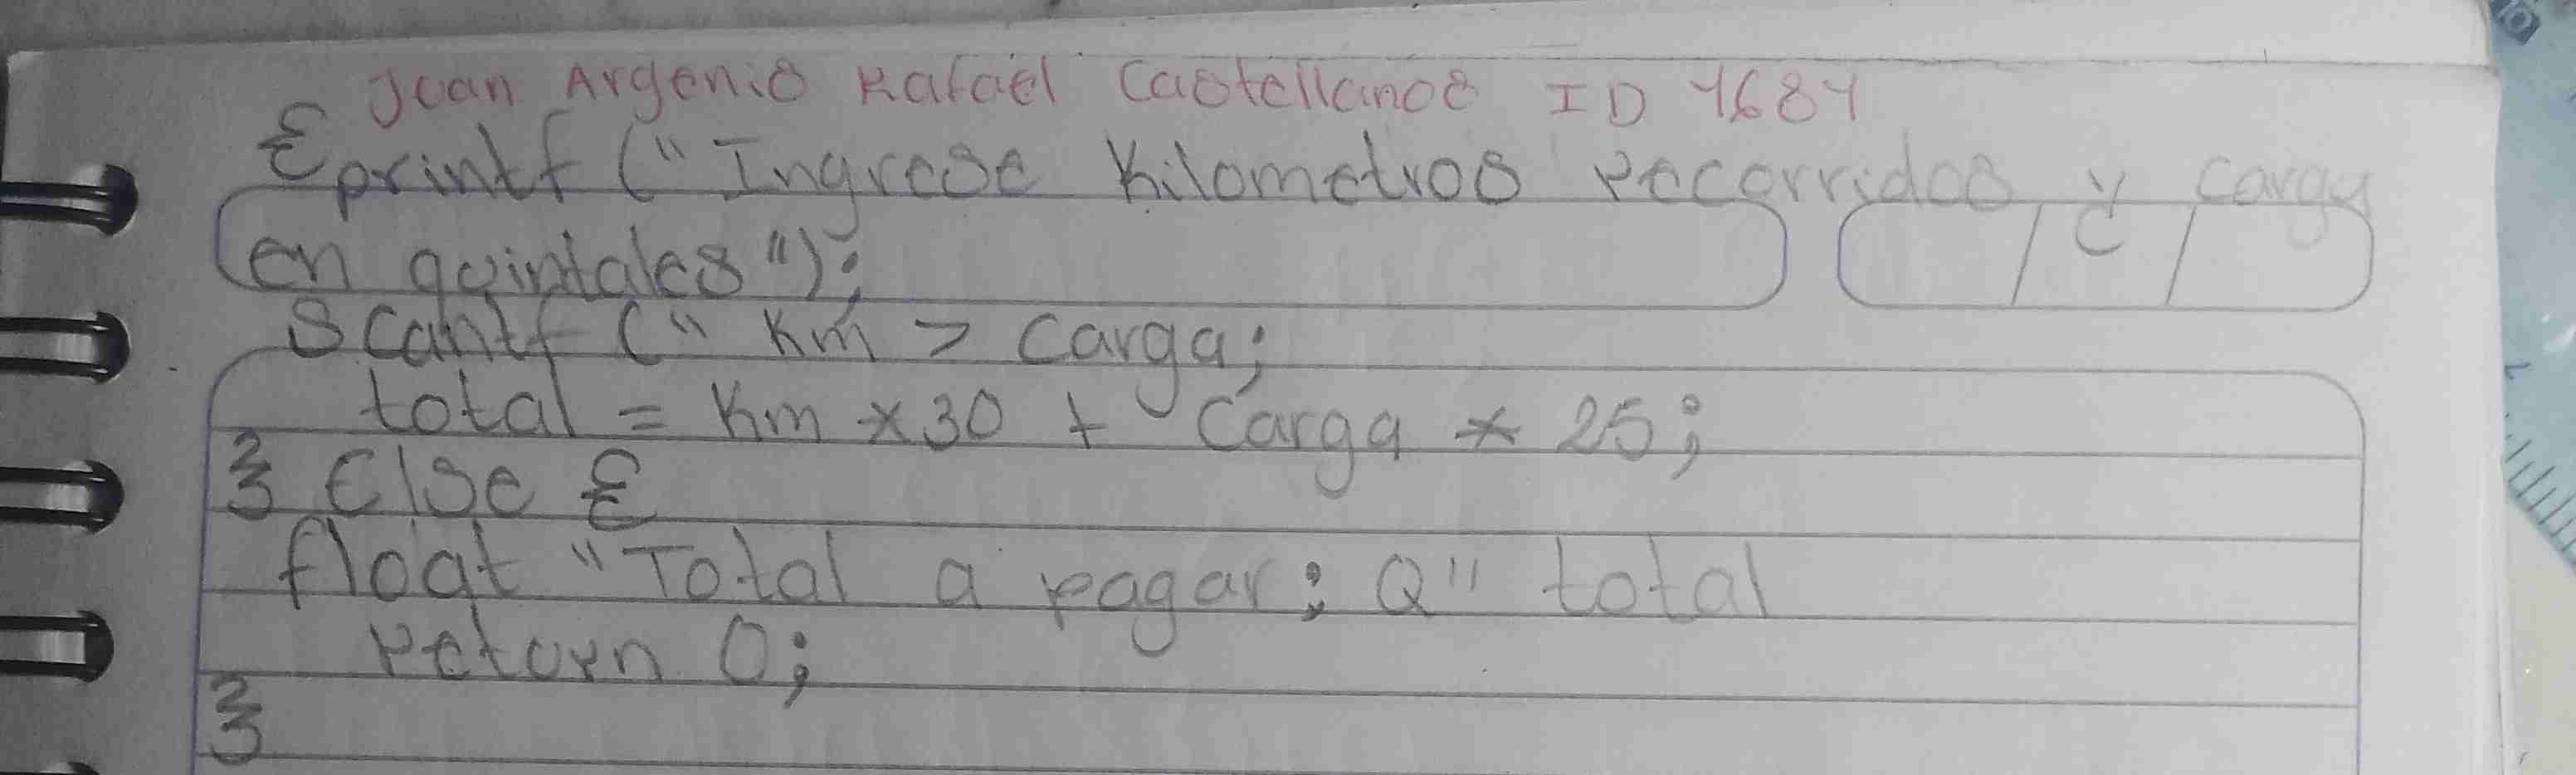 Juan Argenio Rafael Castellanos ID 1684
{ printf (" Ingrese Kilometros recorridos y carga
en quintales");
Scantf (" Km > Carga;
total = Km * 30 + Carga * 25;
} Else {
float "Total a pagar: Q" total
return 0;
}